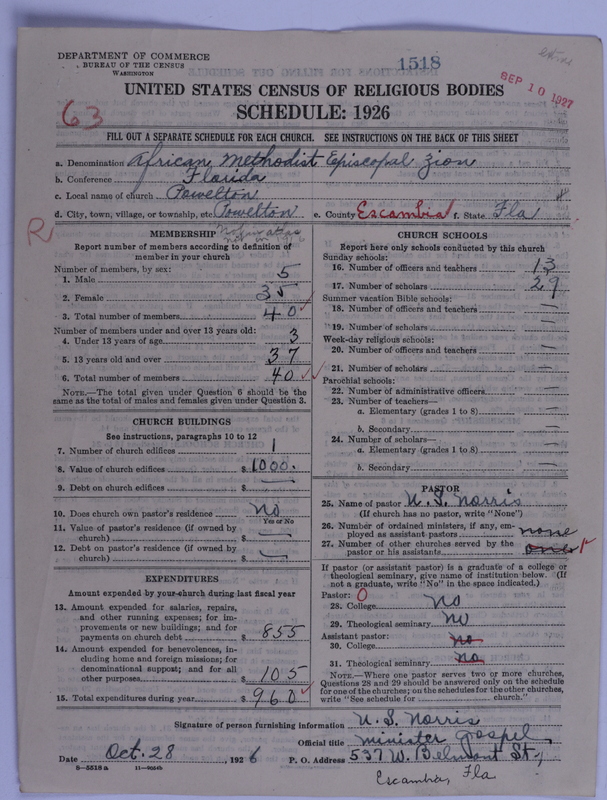 DEPARTMENT OF COMMERCE
BUREAU OF THE CENSUS
WASHINGTON
1518
SEP 10 1927
UNITED STATES CENSUS OF RELIGIOUS BODIES
63
SCHEDULE: 1926
FILL OUT A SEPARATE SCHEDULE FOR EACH CHURCH. SEE INSTRUCTIONS ON THE BACK OF THIS SHEET
a. Denomination African Methodist Episcopal Zion
b. Conference Florida
c. Local name of church Powelton
d. City, town, village, or township, etc. Powelton e. County Escambia f. State Fla
R
MEMBERSHIP
not in 1916
Report number of members according to definition of
member in your church
Number of members, by sex:
1. Male 5
2. Female 35
3. Total number of members 40
Number of members under and over 13 years old:
4. Under 13 years of age 3
5. 13 years old and over 37
6. Total number of members 40
NOTE.—The total given under Question 6 should be the
same as the total of males and females given under Question 3.
CHURCH BUILDINGS
See instructions, paragraphs 10 to 12
7. Number of church edifices 1
8. Value of church edifices $ 1000.
9. Debt on church edifices $ —
10. Does church own pastor's residence? no
Yes or No
11. Value of pastor's residence (if owned by
church) $ —
12. Debt on pastor's residence (if owned by
church) $ —
EXPENDITURES
Amount expended by your church during last fiscal year
13. Amount expended for salaries, repairs,
and other running expenses; for im-
provements or new buildings; and for
payments on church debt $ 855
14. Amount expended for benevolences, in-
cluding home and foreign missions; for
denominational support; and for all
other purposes $ 105
15. Total expenditures during year $ 960
CHURCH SCHOOLS
Report here only schools conducted by this church
Sunday schools:
16. Number of officers and teachers 13
17. Number of scholars 29
Summer vacation Bible schools:
18. Number of officers and teachers —
19. Number of scholars —
Week-day religious schools:
20. Number of officers and teachers —
21. Number of scholars —
Parochial schools:
22. Number of administrative officers —
23. Number of teachers—
a. Elementary (grades 1 to 8) —
b. Secondary —
24. Number of scholars—
a. Elementary (grades 1 to 8) —
b. Secondary —
PASTOR
25. Name of pastor U. S. Norris
(If church has no pastor, write "None")
26. Number of ordained ministers, if any, em-
ployed as assistant pastors none
27. Number of other churches served by the
pastor or his assistants ones 1
If pastor (or assistant pastor) is a graduate of a college or
theological seminary, give name of institution below. (If
not a graduate, write "No" in the space indicated.)
Pastor: O
28. College no
29. Theological seminary no
Assistant pastor:
30. College no
31. Theological seminary no
NOTE.—Where one pastor serves two or more churches,
Questions 28 and 29 should be answered only on the schedule
for one of the churches; on the schedules for the other churches,
write "See schedule for church."
Signature of person furnishing information U. S. Norris
Official title minister Gospel
Date Oct. 28, 1926 P. O. Address 537 W. Belmont St.,
8—5518a
Escambia, Fla